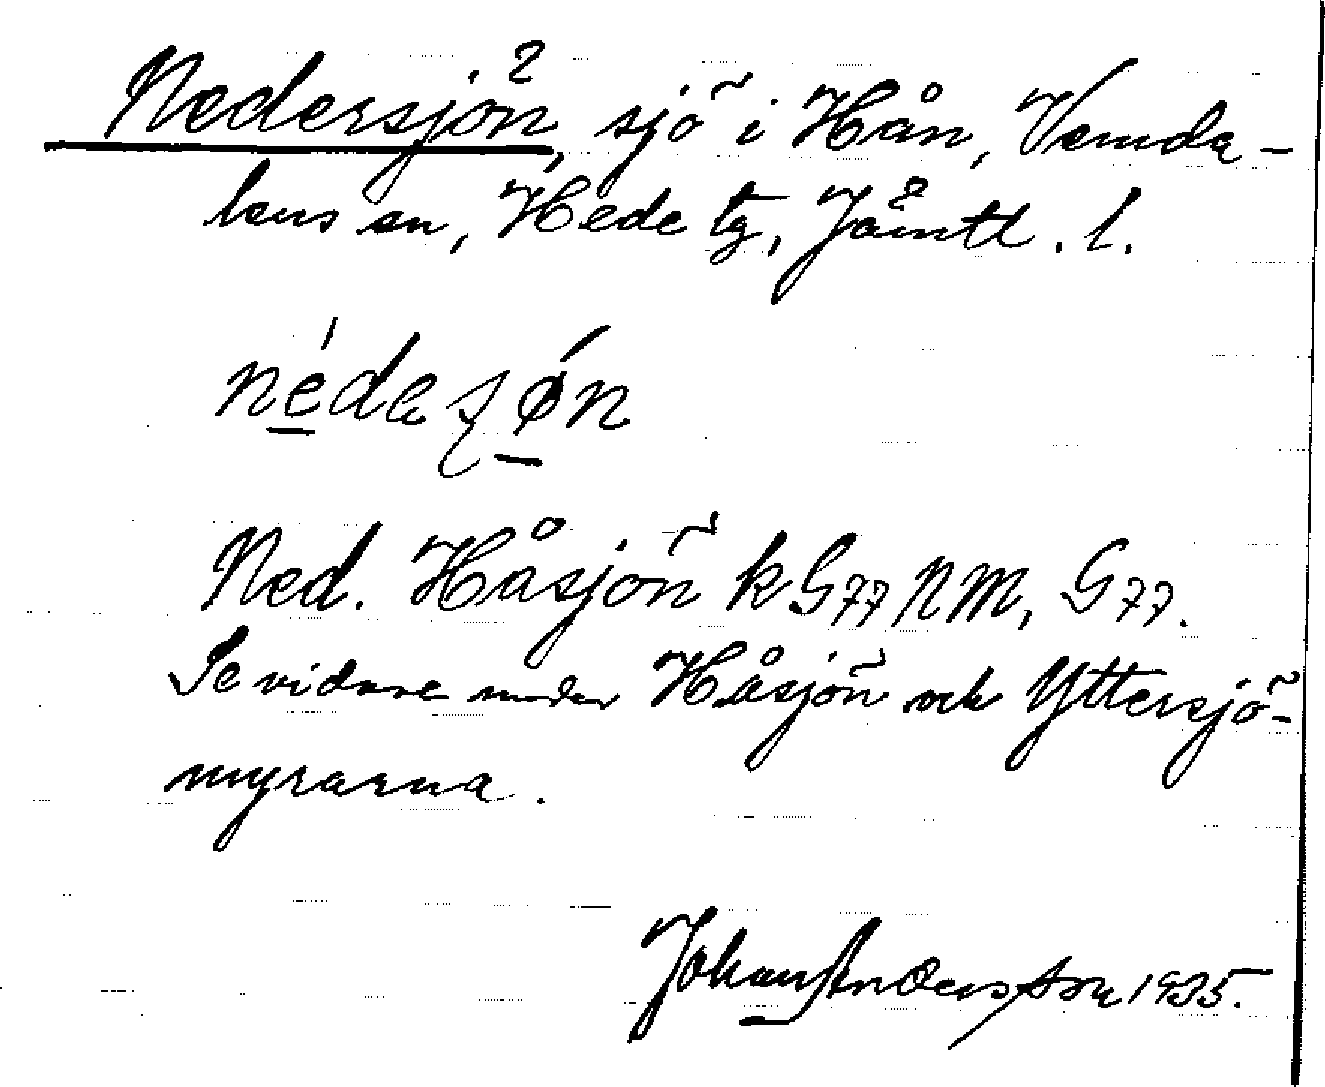 Nedersjön, sjö i Hån, Vemda-
lens sn, Hede tg, Jämtl. l.
nédesøn
Ned. Håsjön k G77 NM, G77.
Se vidare under Håsjön och Yttersjö-
myrarna.
Johan Andersson 1935.